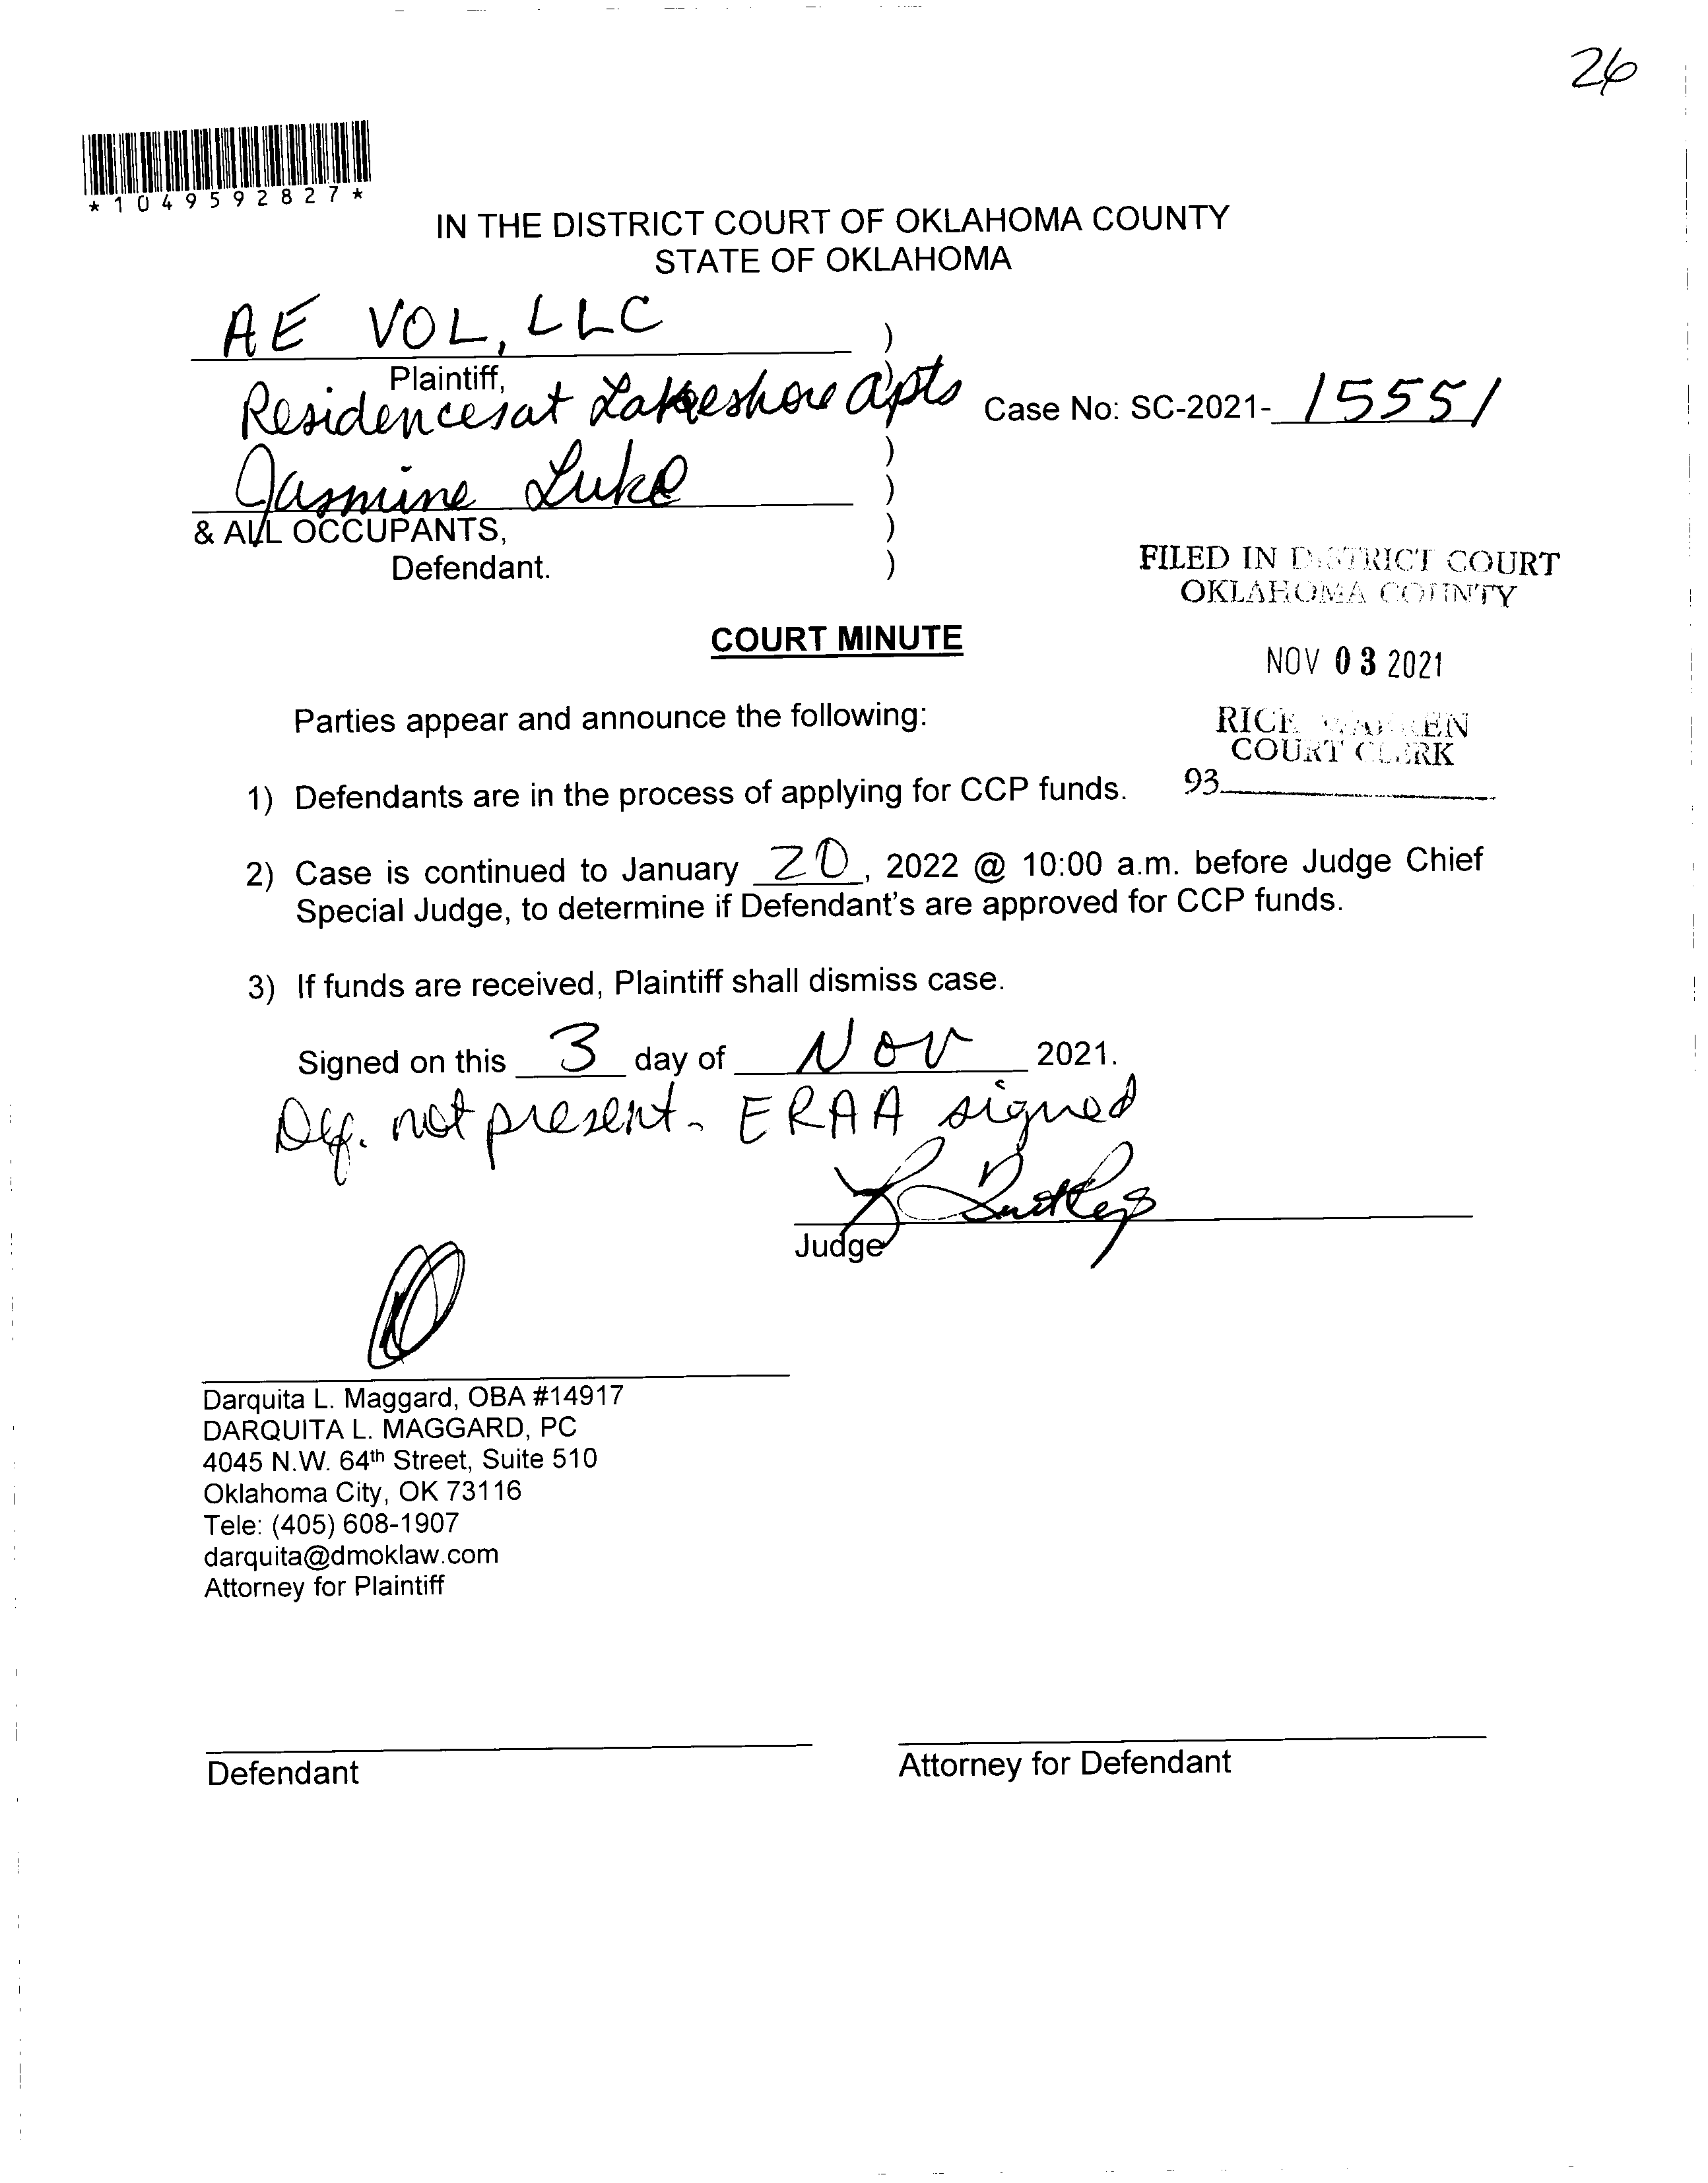 26
*1049592827*
IN THE DISTRICT COURT OF OKLAHOMA COUNTY
STATE OF OKLAHOMA
AE VOL, LLC )
Plaintiff, )
Residences at Lakeshore Apts
Case No: SC-2021- 15551
)
Jasmine Luke )
& ALL OCCUPANTS, )
Defendant. )
FILED IN DISTRICT COURT
OKLAHOMA COUNTY
COURT MINUTE
NOV 03 2021
Parties appear and announce the following:
RICK WARREN
COURT CLERK
1) Defendants are in the process of applying for CCP funds.
93
2) Case is continued to January 20, 2022 @ 10:00 a.m. before Judge Chief
Special Judge, to determine if Defendant's are approved for CCP funds.
3) If funds are received, Plaintiff shall dismiss case.
Signed on this 3 day of Nov 2021.
Def. not present - ERAA signed
Judge
Darquita L. Maggard, OBA #14917
DARQUITA L. MAGGARD, PC
4045 N.W. 64th Street, Suite 510
Oklahoma City, OK 73116
Tele: (405) 608-1907
darquita@dmoklaw.com
Attorney for Plaintiff
Defendant
Attorney for Defendant